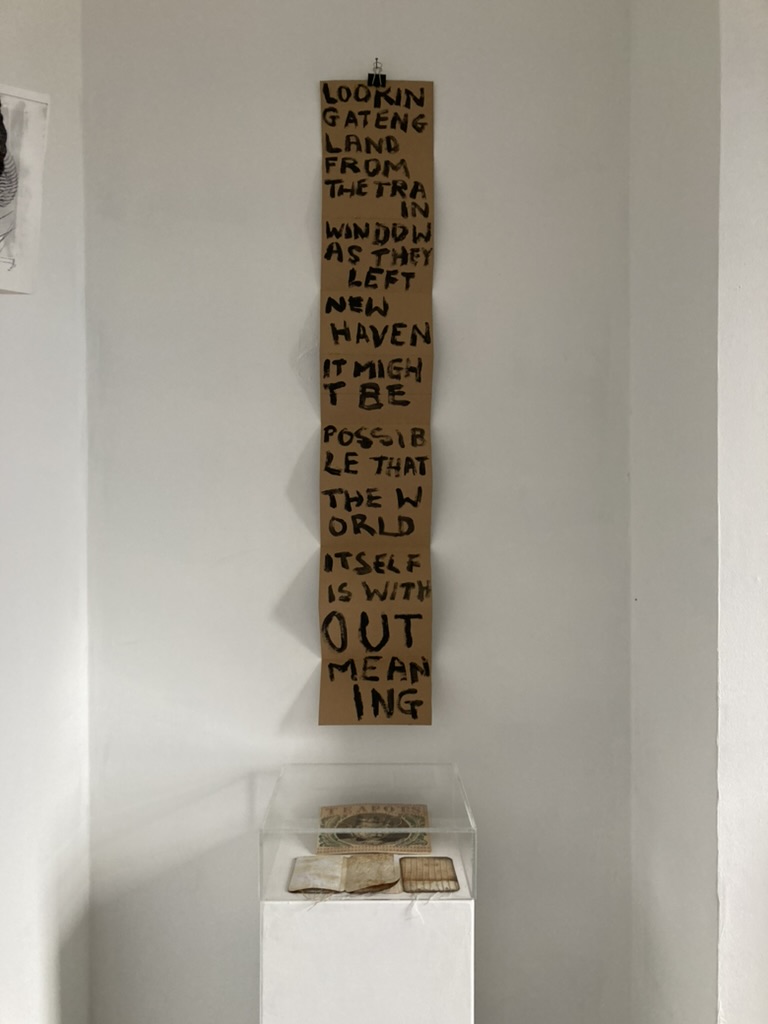 LOOKIN
GATENG
LAND
FROM
THETRA
IN
WINDOW
AS THEY
LEFT
NEW
HAVEN
IT MIGH
T BE
POSSIB
LE THAT
THE W
ORLD
ITSELF
IS WITH
OUT
MEAN
ING
TRAPOES